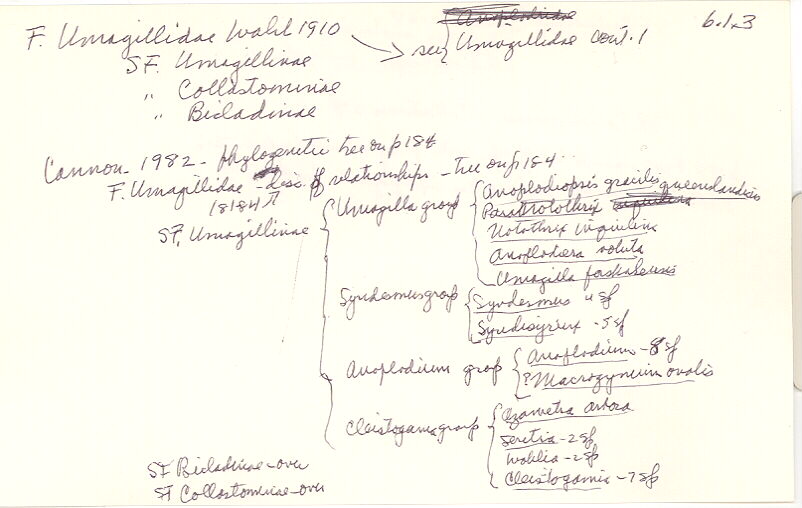 6.1.3
F. Umagillidae Wahl 1910 → see { Umagillidae cont. 1
SF. Umagillinae
" Collastominae
" Bicladinae
Cannon - 1982 - phylogenetic tree on p 184
F. Umagillidae - disc. of relationships - tree on p 184
SF, Umagillinae
Umagilla group
Anoplodiopsis gracilis
Paranotothrix queenslandis
Notothrix inquilina
Anoplodiera voluta
Umagilla forskalensis
Syndesmus group
Syndesmus 4 sp
Syndisyrinx - 5 sp
Anoplodium group
Anoplodium - 8 sp
? Macrogynium ovalis
Cleistogamia group
Ozametra arbora
Seritia - 2 sp
Wahlia - 2 sp
Cleistogamia - 7 sp
SF Bicladinae - over
SF Collostominae - over